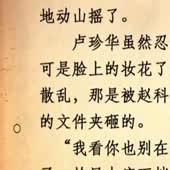 地动山摇了。
卢珍华虽然忍
可是脸上的妆花了
散乱，那是被赵科
的文件夹砸的。
“我看你也别在